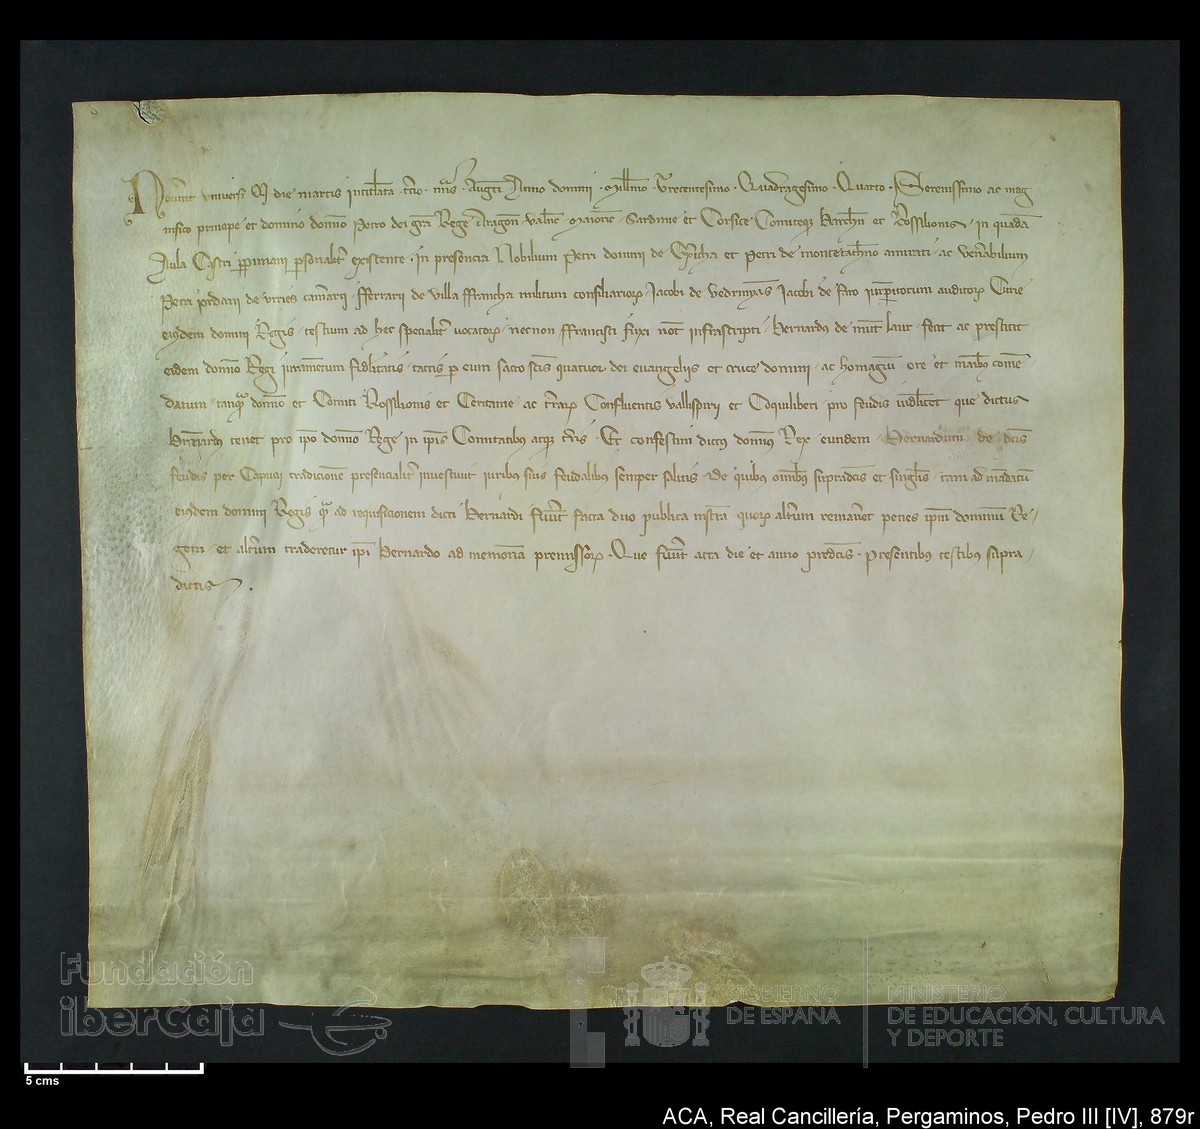 Noverint universi q die martis intitlata tcio mens Augti Anno domini Millmo Trecentesimo Quadragesimo Quarto Serenissimo ac mag
nifico principe et domino domno Petro dei gra Rege Aragon Valnc Maioric Sardinie et Corsice Comiteq Barchn et Rossilionis in quada
Aula Castri ppiniani psonalit existente in presencia Nobilium Petri domini de et Petri de montechno amirati ac venabilium
Petri jordani de urries camarii fferrarii de villa ffrancha militum consiliarior Jacobi de Jacobi de faro jurispitorum auditor Curie
eiusdem domini Regis testium ad hec specialit vocator necnon ffrancisci fuxi not infrascripti Bernardus de mut laur fecit ac prestitit
eidem domno Regi iuramentum fidlitatis tactis p eum sacro scis quatuor dei evangeliis et cruce domini ac homagiu ore et manib come
datum tanq domno et Comiti Rossilionis et Ceritanie ac trar Confluentis vallispirii et Coquiliberi pro feudis vidlicet que dictus
Bernardus tenet pro ipo domno Rege in ipis Comitatibus acq tris Et confestim dictus domnus Rex eundem Bernardum de dcis
feudis per Capucii tradicione presencialit investivit iuribus suis feudalibus semper salvis De quibus omnibus supradcis et singlis tam ad madatu
eiusdem domini Regis q ad requisicionem dicti Bernardi fuut facta duo publica instra quor altum remanet penes ipm dominum Re
gem et altum traderetur ipi Bernardo ad memoria premissor Que fuut acta die et anno predcis Presentibus testibus supra
dictis
Fundación
iberCaja
GOBIERNO
DE ESPAÑA
MINISTERIO
DE EDUCACIÓN, CULTURA
Y DEPORTE
5 cms
ACA, Real Cancillería, Pergaminos, Pedro III [IV], 879r